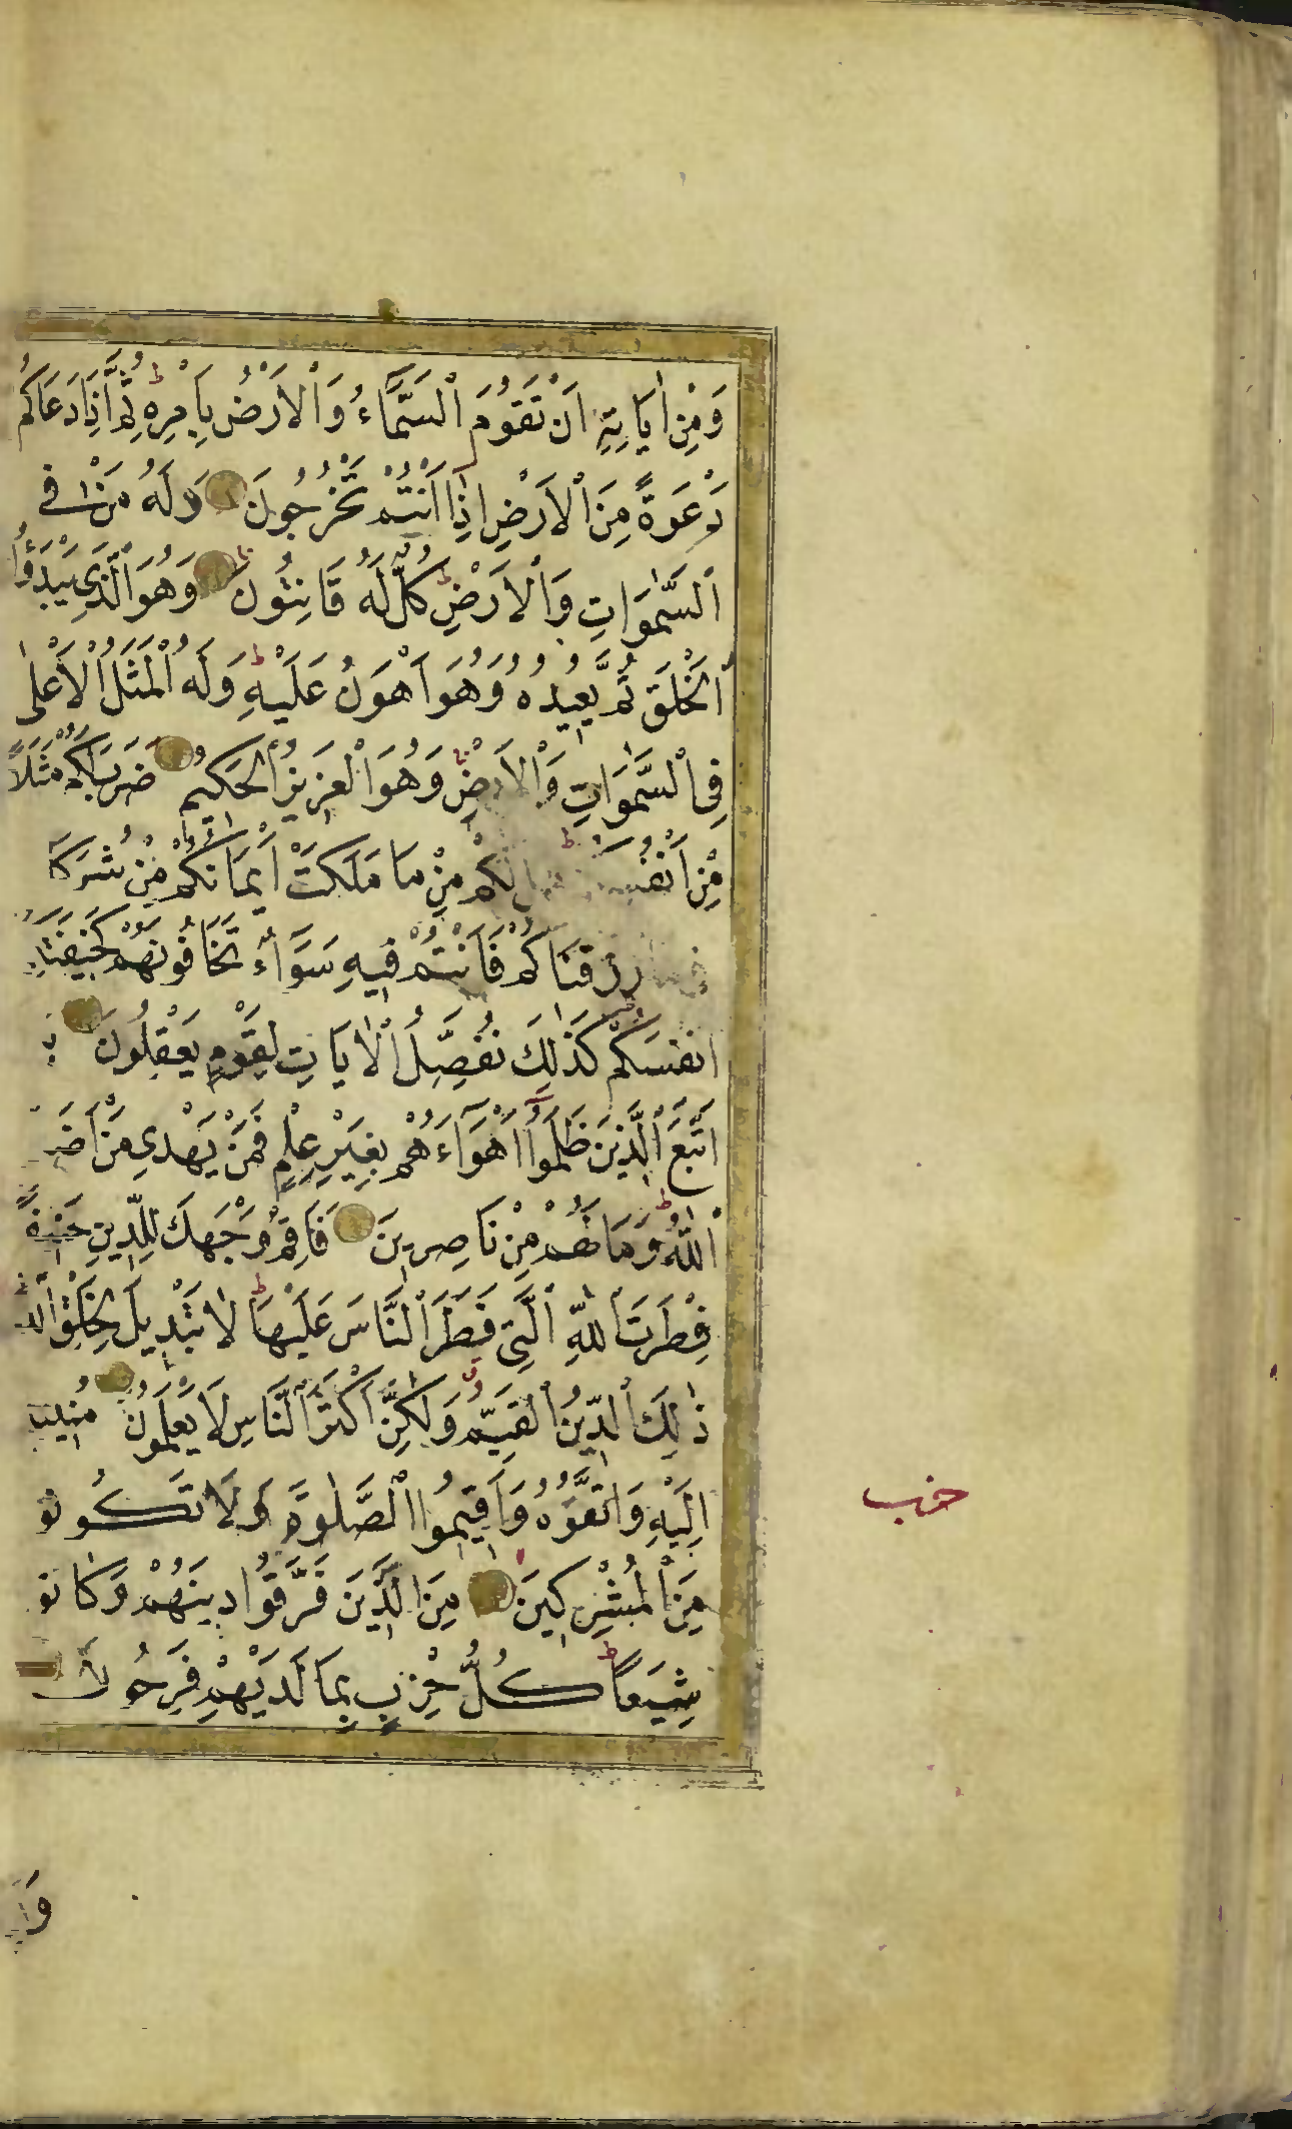 وَمِنْ اٰيَاتِهِ اَنْ تَقُومَ ٱلسَّمَاءُ وَٱلْاَرْضُ بِاَمْرِهِ ثُمَّ اِذَا دَعَاكُمْ
دَعْوَةً مِنَ ٱلْاَرْضِ اِذَا اَنْتُمْ تَخْرُجُونَ وَلَهُ مَنْ فِي
ٱلسَّمٰوَاتِ وَٱلْاَرْضِ كُلٌّ لَهُ قَانِتُونَ وَهُوَ ٱلَّذِي يَبْدَؤُا
ٱلْخَلْقَ ثُمَّ يُعِيدُهُ وَهُوَ اَهْوَنُ عَلَيْهِ وَلَهُ ٱلْمَثَلُ ٱلْاَعْلٰى
فِي ٱلسَّمٰوَاتِ وَٱلْاَرْضِ وَهُوَ ٱلْعَزِيزُ ٱلْحَكِيمُ ضَرَبَ لَكُمْ مَثَلًا
مِنْ لَكُمْ مِنْ مَا مَلَكَتْ اَيْمَانُكُمْ مِنْ شُرَكَا
رَزَقْنَاكُمْ فَاَنْتُمْ فِيهِ سَوَاءٌ تَخَافُونَهُمْ
اَنْفُسَكُمْ كَذٰلِكَ نُفَصِّلُ ٱلْاٰيَاتِ لِقَوْمٍ يَعْقِلُونَ
اتَّبَعَ ٱلَّذِينَ ظَلَمُوا اَهْوَاءَهُمْ بِغَيْرِ عِلْمٍ فَمَنْ يَهْدِي مَنْ
ٱللّٰهُ وَمَا لَهُمْ مِنْ نَاصِرِينَ فَاَقِمْ وَجْهَكَ لِلدِّينِ
فِطْرَتَ ٱللّٰهِ ٱلَّتِي فَطَرَ ٱلنَّاسَ عَلَيْهَا لَا تَبْدِيلَ لِخَلْقِ
ذٰلِكَ ٱلدِّينُ ٱلْقَيِّمُ وَلٰكِنَّ اَكْثَرَ ٱلنَّاسِ لَا يَعْلَمُونَ
اِلَيْهِ وَاتَّقُوهُ وَاَقِيمُوا ٱلصَّلٰوةَ وَلَا تَكُونُو
مِنَ ٱلْمُشْرِكِينَ مِنَ الَّذِينَ فَرَّقُوا دِينَهُمْ وَكَانُو
شِيَعًا كُلُّ حِزْبٍ بِمَا لَدَيْهِمْ فَرِحُونَ